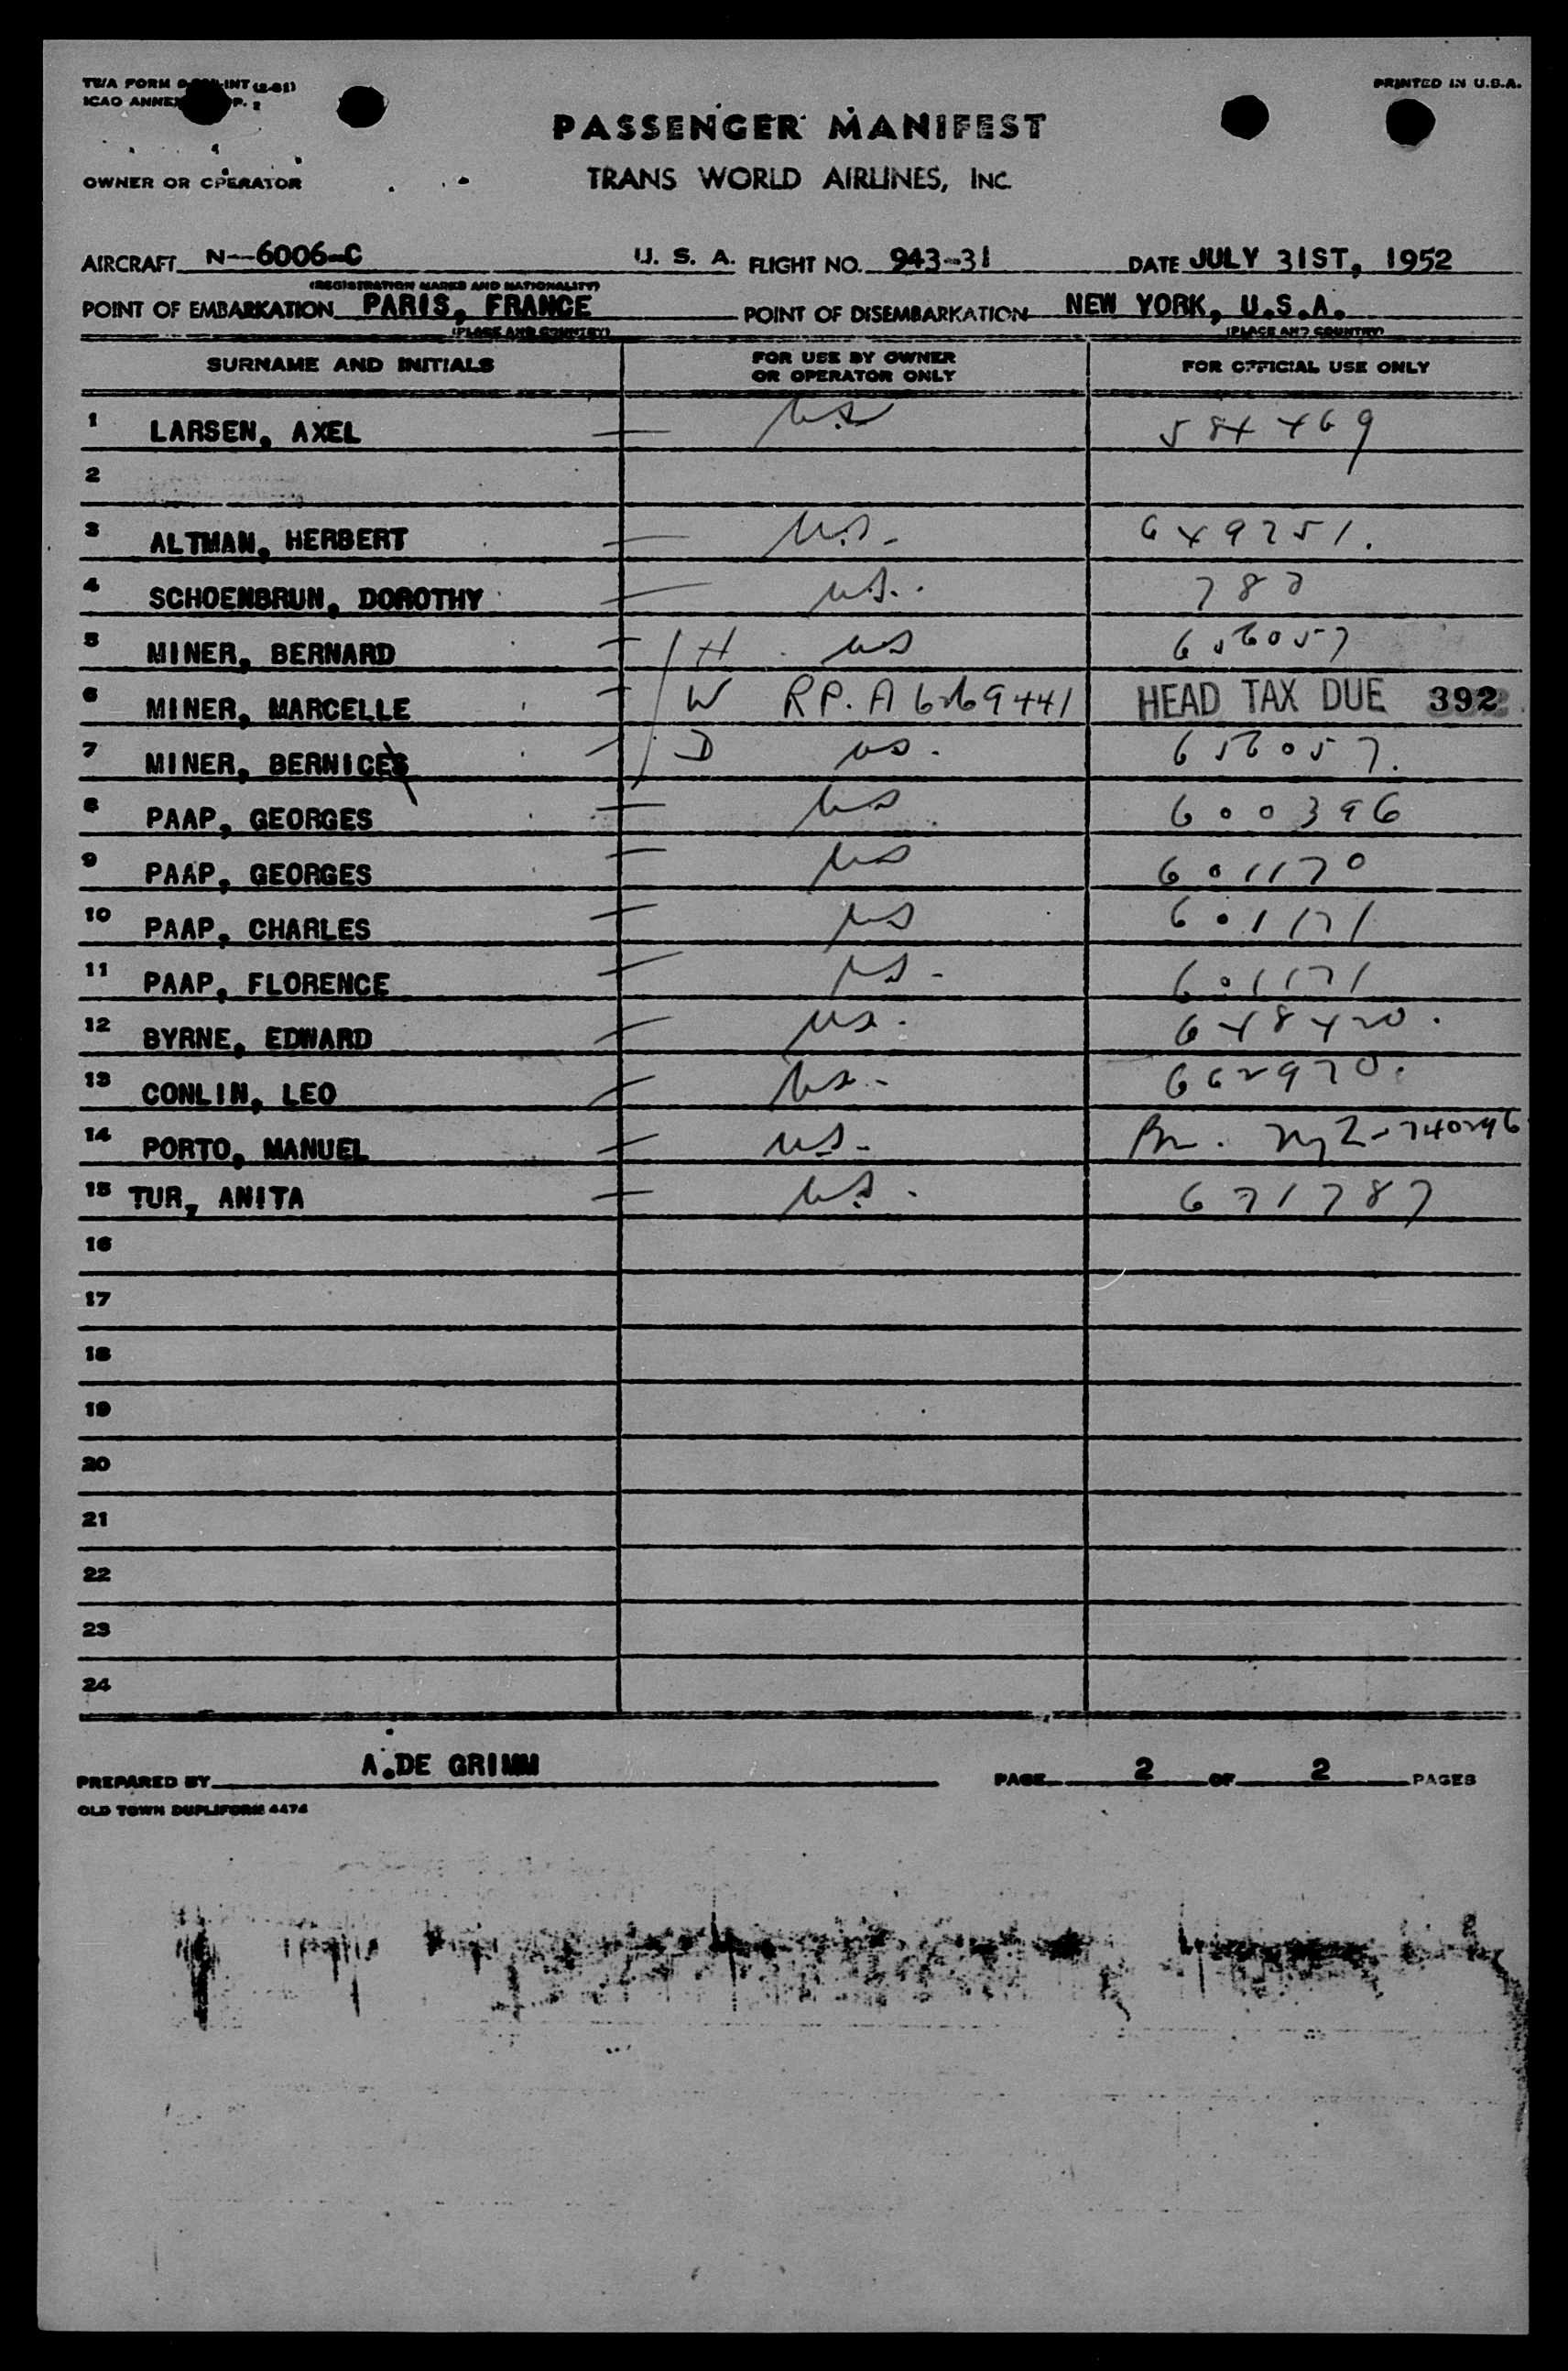 PRINTED IN U.S.A.
PASSENGER MANIFEST
OWNER OR OPERATOR
TRANS WORLD AIRLINES, INC.
AIRCRAFT N--6006-C U. S. A. FLIGHT NO. 943-31 DATE JULY 31ST, 1952
(REGISTRATION MARKS AND NATIONALITY)
POINT OF EMBARKATION PARIS, FRANCE POINT OF DISEMBARKATION NEW YORK, U.S.A.
(PLACE AND COUNTRY) (PLACE AND COUNTRY)
SURNAME AND INITIALS FOR USE BY OWNER OR OPERATOR ONLY FOR OFFICIAL USE ONLY
1 LARSEN, AXEL — U.S 584469
2
3 ALTMAN, HERBERT — U.S. 649251.
4 SCHOENBRUN, DOROTHY — U.S. 
5 MINER, BERNARD — H US 656057
6 MINER, MARCELLE — W R.P. HEAD TAX DUE 392
7 MINER, BERNICE — D US. 656057.
8 PAAP, GEORGES — US 600396
9 PAAP, GEORGES — US 601170
10 PAAP, CHARLES — US 601171
11 PAAP, FLORENCE — US. 601171
12 BYRNE, EDWARD — US. 648420.
13 CONLIN, LEO — US. 662970.
14 PORTO, MANUEL — U.S.
15 TUR, ANITA — U.S. 671787
16
17
18
19
20
21
22
23
24
PREPARED BY A.DE GRIMM PAGE 2 OF 2 PAGES
OLD TOWN DUPLIFORM 4474